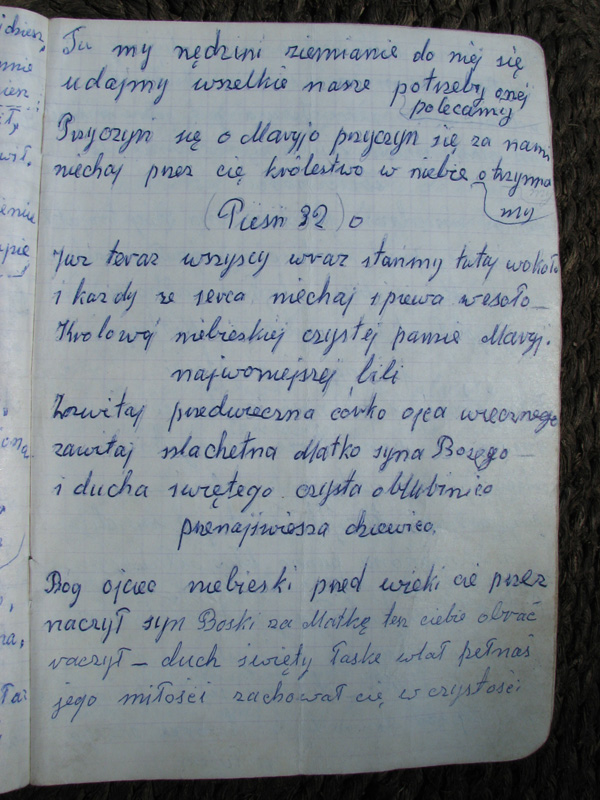 Tu my nędzini ziemianie do niej się
udajmy wszelkie nasze potrzeby onej
polecamy
Przyczyń się o Maryjo przyczyn się za nami
niechaj przez cię królestwo w niebie otrzyma
my
(Pieśń 32) o
Już teraz wszyscy wraz stańmy tutaj wokoło
i każdy ze serca niechaj spiewa wesoło
Królowej niebieskiej czystej pannie Maryj.
najwoniejszej lili
Zawitaj przedwieczna córko ojca wiecznego
zawitaj szlachetna Matko syna Bożego
i ducha świętego czysta oblubinico
przenajświesza dziewico.
Bog ojciec niebieski pred wieki cie przez
naczył syn Boski za Matkę tez ciebie obrać
raczył – duch święty łaske wlał pełnaś
jego miłości zachował cię w czystości